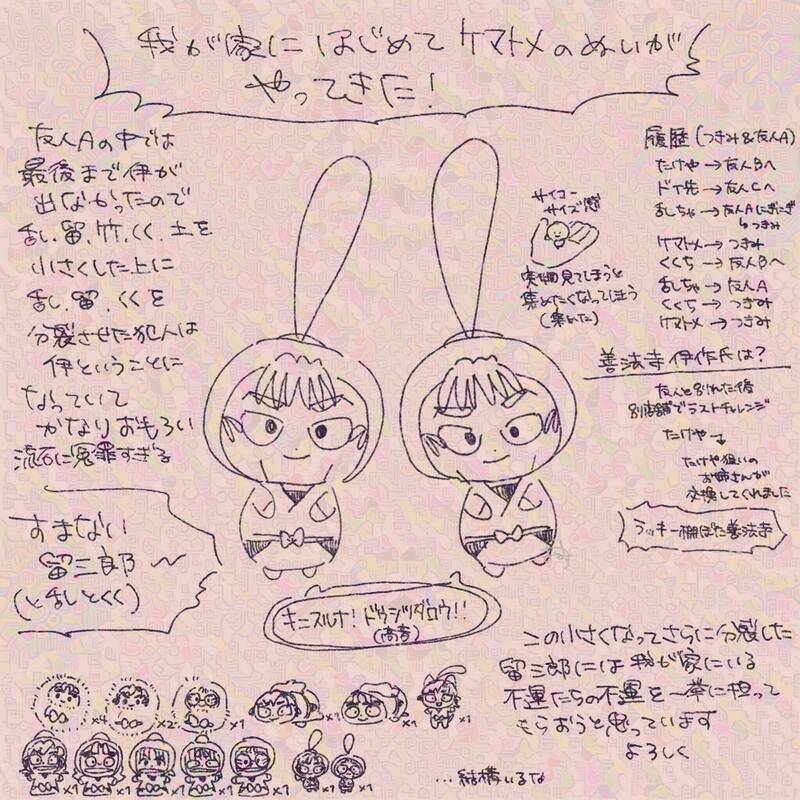 我が家にはじめてケマトメのぬいが
やってきた!
友人Aの中では
最後まで伊が
出なかったので
乱、留、竹、くく、土を
小さくした上に
乱、留、くくを
分裂させた犯人は
伊ということに
なっていて
かなりおもろい
流石に冤罪すぎる
すまない
留三郎〜
(と乱とくく)
サイコー
サイズ感
実物見てしまうと
集めたくなってしまう
(集めた)
履歴(つきみ&友人A)
たけや→友人Bへ
ドイ先→友人Cへ
乱しちゃ→友人Aにぎにぎ
↳つきみ
ケマトメ→つきみ
くくち→友人Bへ
乱しちゃ→友人A
くくち→つきみ
ケマトメ→つきみ
善法寺伊作氏は?
友人と別れた後
別店舗でラストチャレンジ
たけや
たけや狙いの
お姉さんが
交換してくれました
ラッキー棚ぼた善法寺
キニスルナ!ドウシツダロウ!!
(高音)
この小さくなってさらに分裂した
留三郎には我が家にいる
不運たちの不運を一挙に担って
もらおうと思っています
よろしく
×4 ×2 ×1 ×1 ×1 ×1
×1 ×1 ×1 ×1 ×1 ×1 ×1
…結構いるな